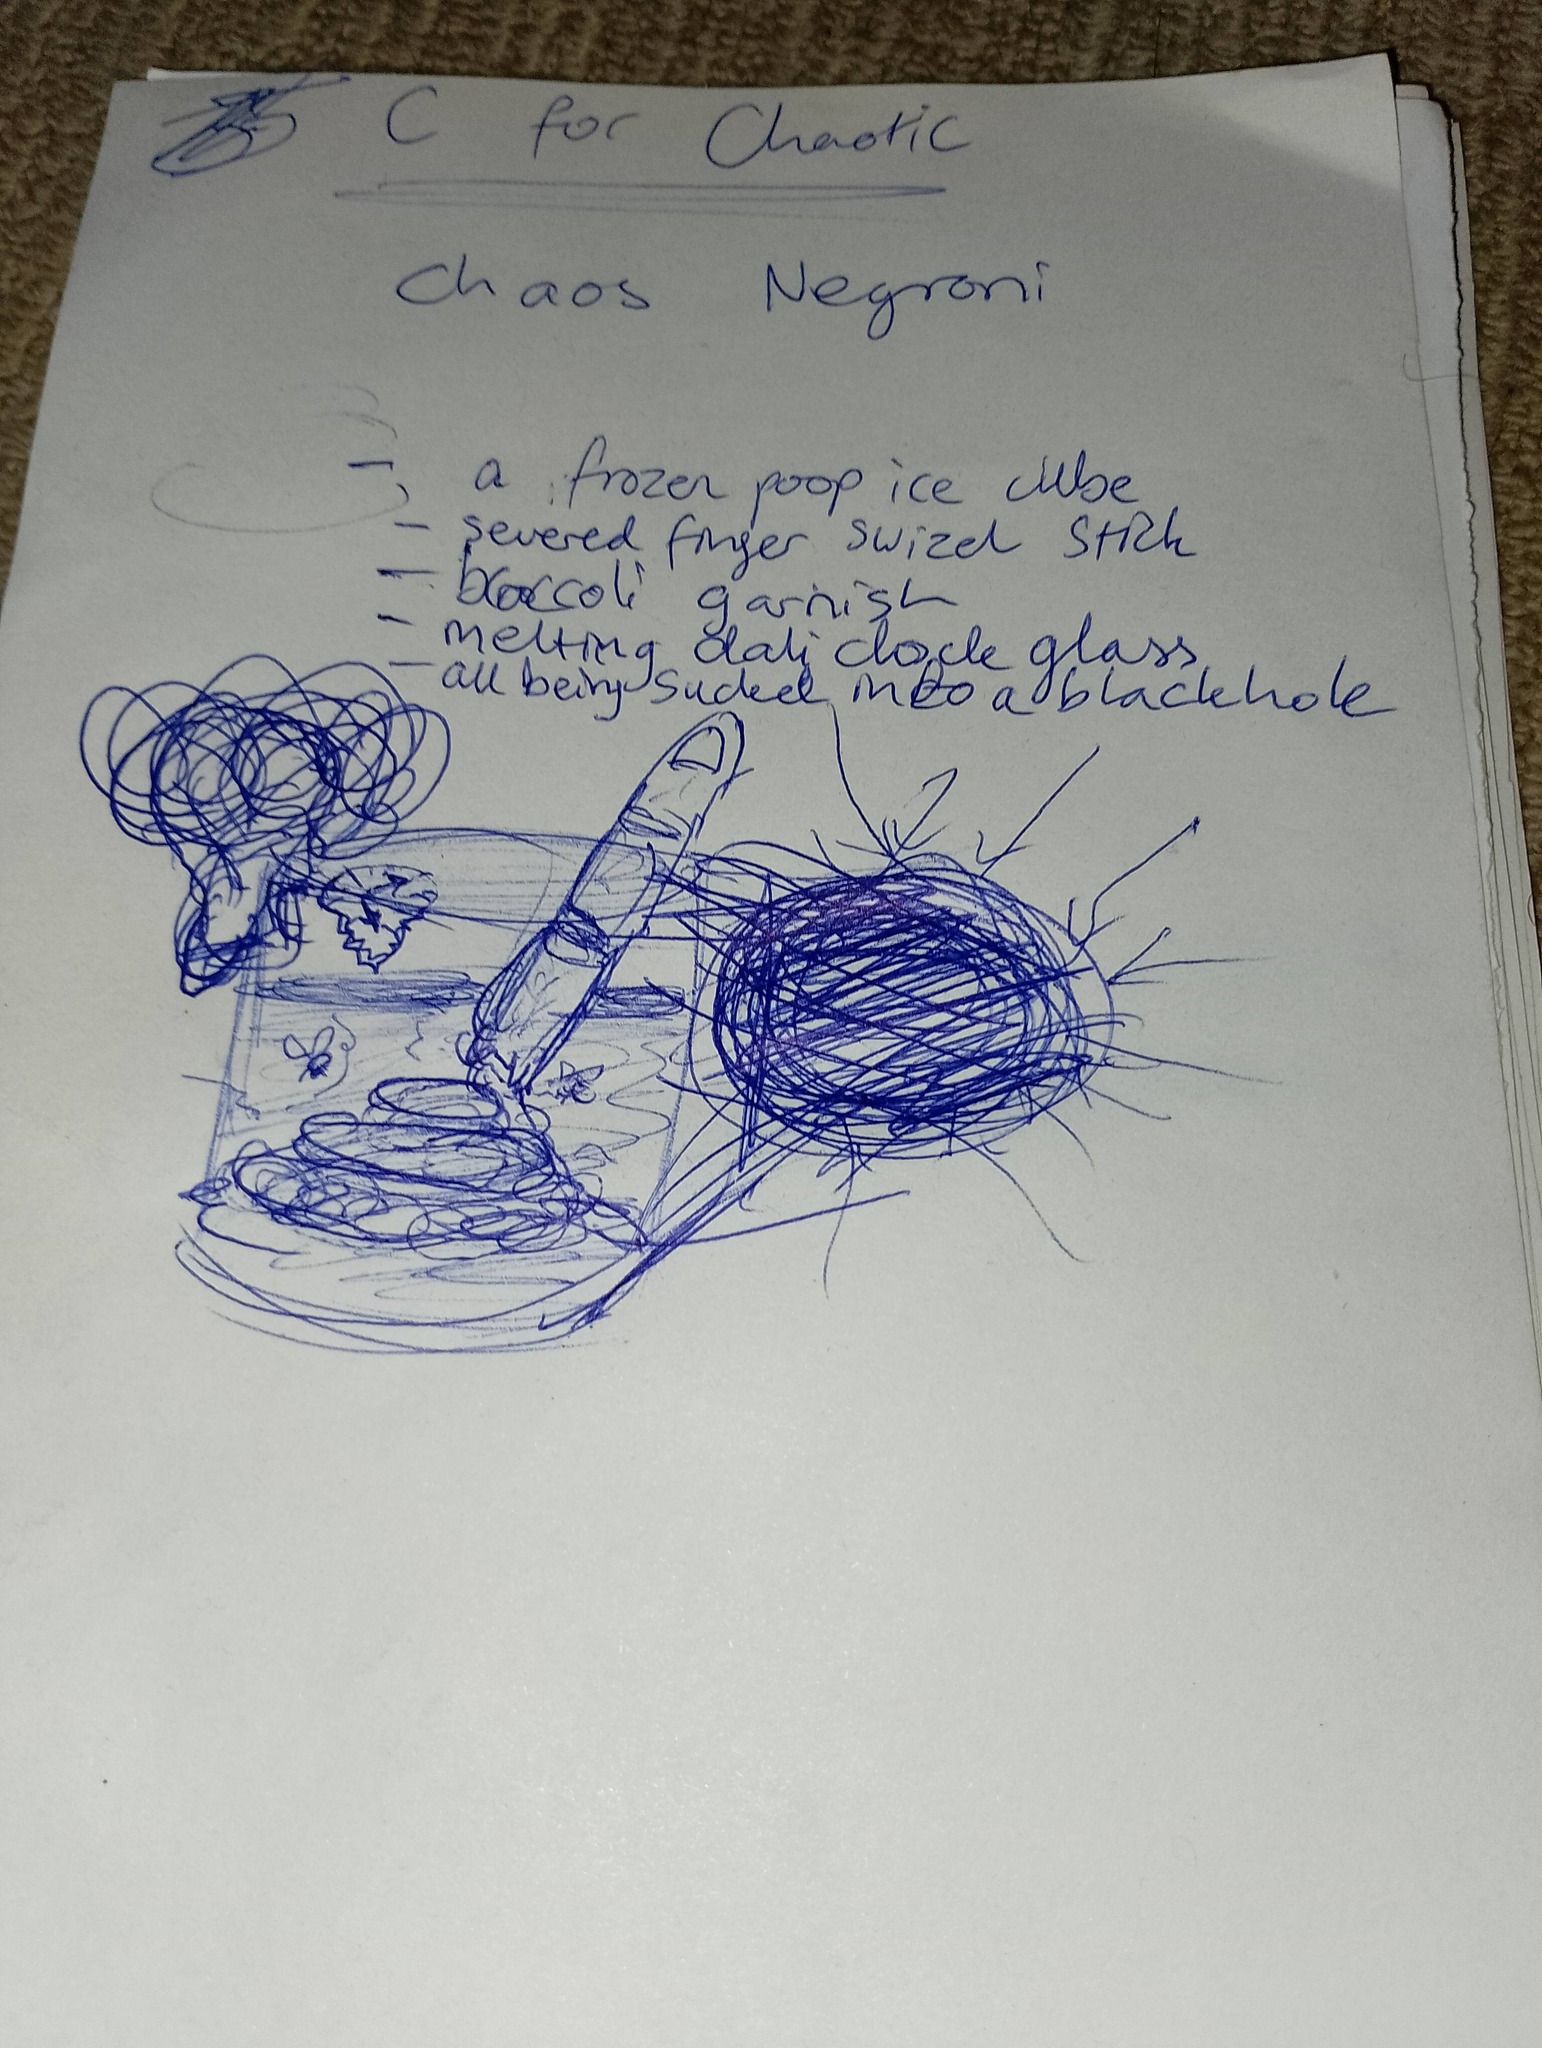 C for Chaotic
Chaos Negroni
- a frozen poop ice cube
- severed finger swizel stick
- broccoli garnish
- melting dali clock glass
- all being sucked into a blackhole